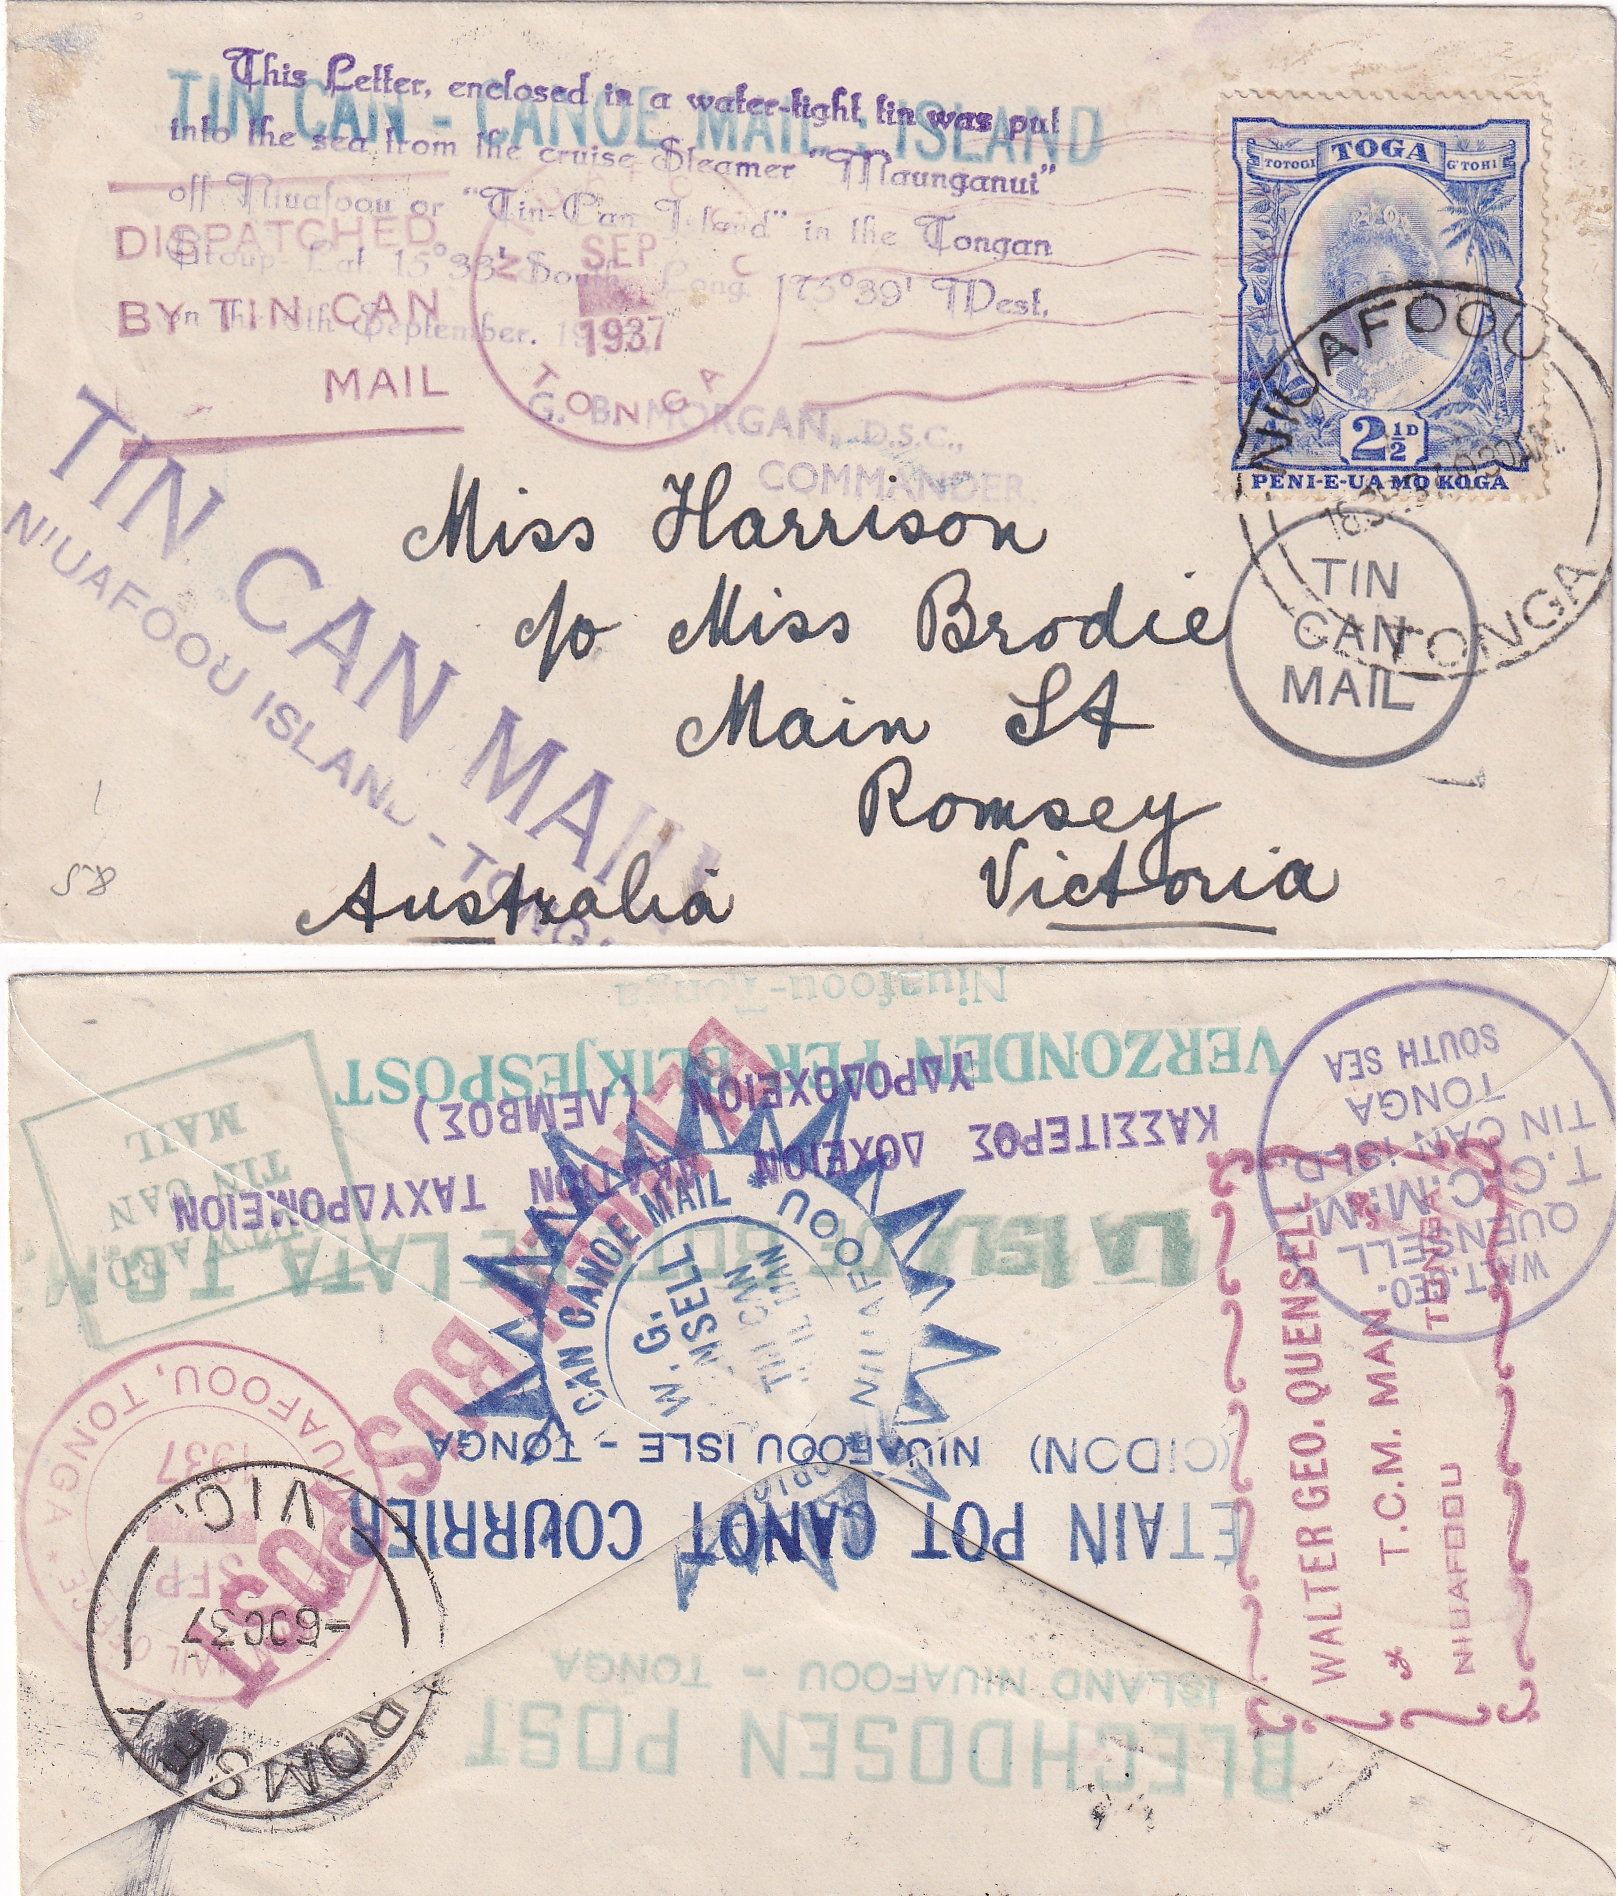 This Letter, enclosed in a water-tight tin was put
into the sea from the cruise Steamer "Maunganui"
off Niuafoou or "Tin-Can Island" in the Tongan
Group- Lat 15°33' South, Long 175°39' West.
on the September.
TIN CAN - CANOE MAIL : ISLAND
DISPATCHED
BY TIN CAN
MAIL
SEP
1937
TONGA
G. B. MORGAN, D.S.C.,
COMMANDER.
TOGA
TOTOGI
G'TOHI
2½D
PENI-E-UA MO KOGA
NIUAFOOU
TONGA
TIN
CAN
MAIL
TIN CAN MAIL
NIUAFOOU ISLAND - TONGA
Miss Harrison
c/o Miss Brodie
Main St
Romsey
Victoria
Australia
58
Niuafoou-Tonga
VERZONDEN PER BLIKJESPOST
ΚΑΣΣΙΤΕΡΟΣ ΔΟΧΕΙΟΝ ΤΑΧΥΔΡΟΜΕΙΟΝ
ΥΔΡΟΔΟΧΕΙΟΝ (ΛΕΜΒΟΣ)
LA ISLA DE BOTE DE LATA T.C.M.
TIN CAN
MAIL
WALT. GEO.
QUENSELL
T.C.C.M.M.
TIN CAN ISLD.
TONGA
SOUTH SEA
CAN CANOE MAIL
W. G.
QUENSELL
TIN CAN
MAIL MAN
NIUAFOOU
BUSPOST
NIUAFOOU, TONGA
SEP
1937
(CIDON) NIUAFOOU ISLE - TONGA
ETAIN POT CANOT COURRIER
WALTER GEO. QUENSELL
T.C.M. MAN
NIUAFOOU TONGA
ROMSEY
-6OC37
VIC.
BLECHDOSEN POST
ISLAND NIUAFOOU - TONGA